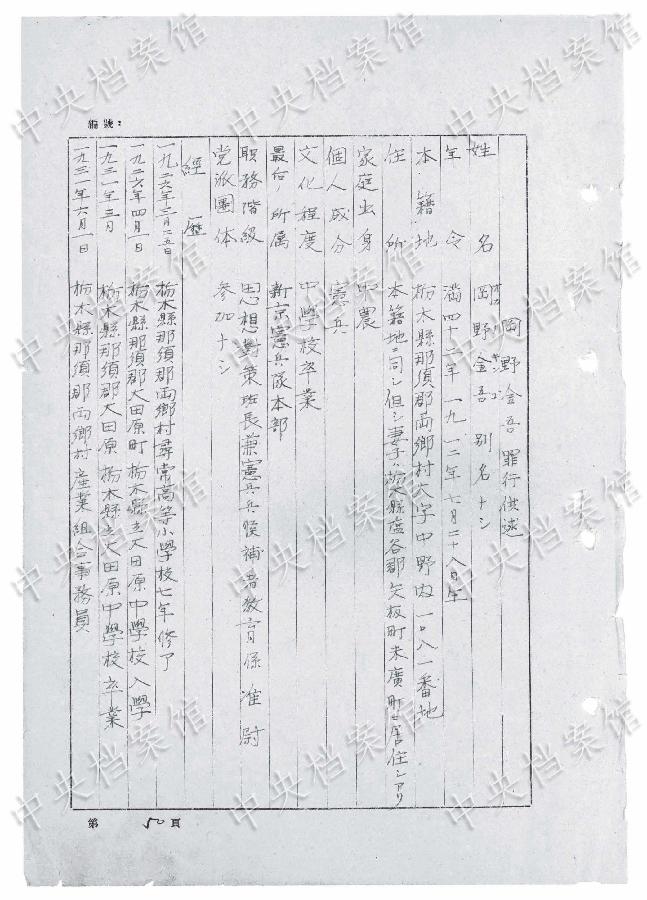 編號：
岡野淦吾 罪行供述
姓名 岡野金吾 別名ナシ
年令 満四十二年 一九一二年七月二十八日生
本籍地 栃木縣那須郡両郷村大字中野内一〇八一番地
住所 本籍地ニ同シ但シ妻子ハ栃木縣塩谷郡矢板町末廣町ニ居住シアリ
家庭出身 中農
個人成分 憲兵
文化程度 中學校卒業
最后ノ所属 新京憲兵隊本部
职務階級 思想對策班長兼憲兵兵候補者教育係 准尉
党派團体 参加ナシ
經歷
一九二六年三月二五日 栃木縣那須郡両郷村尋常高等小學校七年修了
一九二六年四月一日 栃木縣那須郡大田原町 栃木縣立大田原中學校入學
一九三一年三月 栃木縣那須郡大田原 栃木縣立大田原中學校卒業
一九三一年六月一日 栃木縣那須郡両郷村産業組合事務員
第 50 頁
中央档案馆